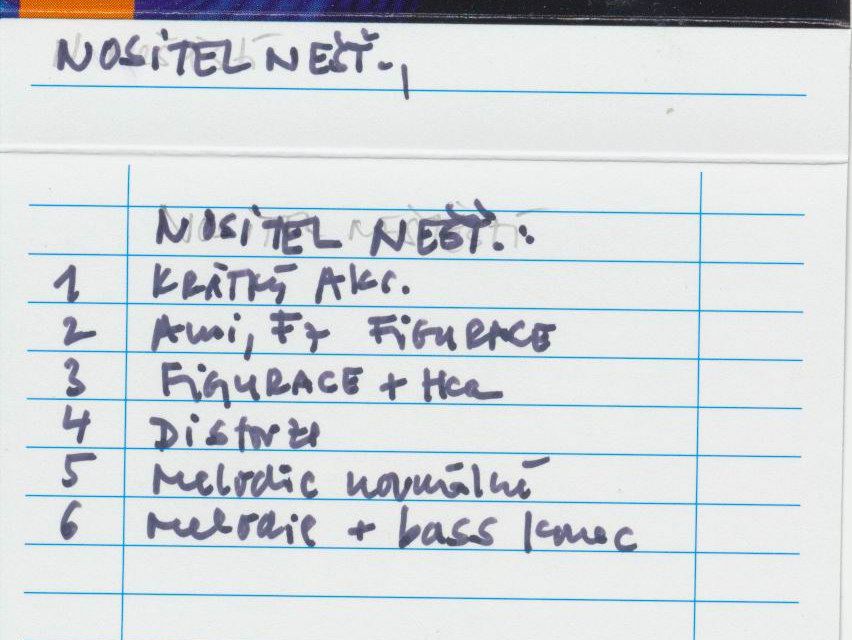 NOSITEL NEŠŤ.,
NOSITEL NEŠŤ.:
1 KRÁTKÝ AKC.
2 Ami, F7 FIGURACE
3 FIGURACE +
4 Distorze
5 Melodie normálně
6 Melodie + bass konec